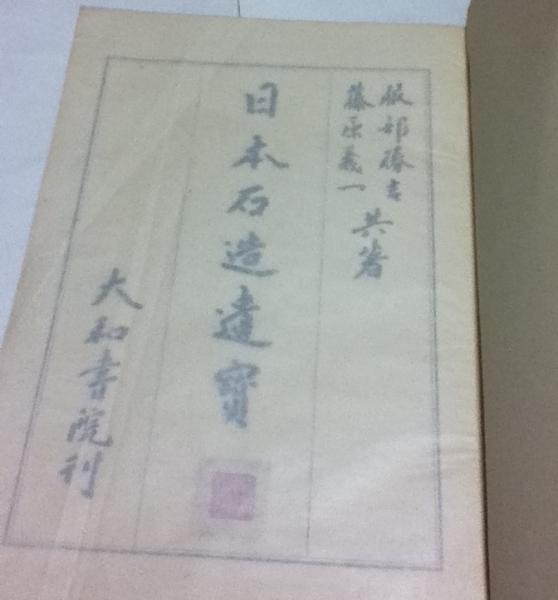 服部勝吉
藤原義一
共著
日本石造遺寶
大和書院刊